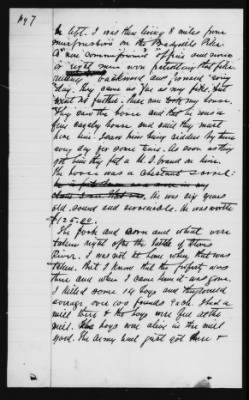 he left. I was then living 8 miles from
Murfreesboro on the Bradyville Pike
A "non commissioned" officer and nine
or eight men were patrolling that pike
backward and forward every
day. They came as far as my place, but
went no further. These men took my horse.
They saw the horse and that he was a
fine cavalry horse and said they must
have him. I saw him being ridden by them
every day for some time. As soon as they
got him they put a U.S. brand on him.
The horse was a chestnut sorrel.
He was six years
old, sound and serviceable. He was worth
$125.00.
The pork and corn and wheat were
taken right after the battle of Stone
River. I was not at home when that was
taken. But I know that the property was
there and when I came home it was gone.
I killed some 14 hogs and they would
average over 200 pounds each. I had a
mill there & the hogs were fed at the
mill. The hogs were alive in the mill
yard. The army had just got there &